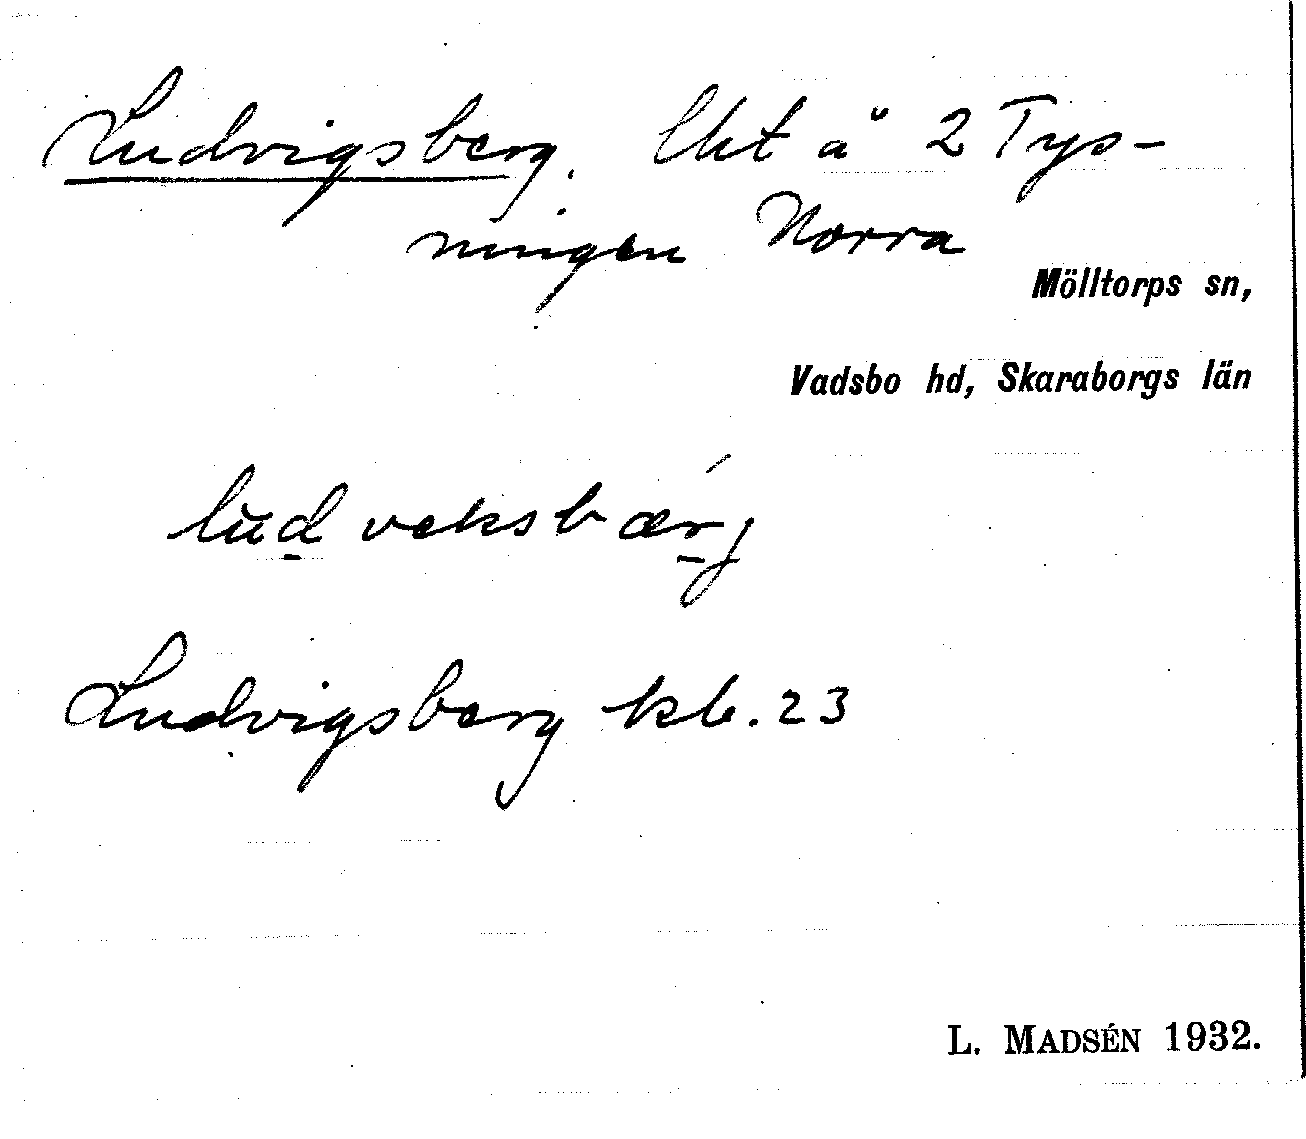 Ludvigsberg. Lht å 2 Tys-
ningen Norra
Mölltorps sn,
Vadsbo hd, Skaraborgs län
ludveksbærj
Ludvigsberg kb. 23
L. MADSÉN 1932.